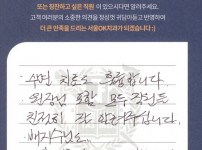 또는 칭찬하고 싶은 직원 이 있으시다면 알려주세요.
고객 여러분의 소중한 의견을 정성껏 귀담아듣고 반영하여
더 큰 만족을 드리는 서울OK치과가 되겠습니다 :)
수면 치료도 훌륭합니다.
원장선생 포함 모두 직원들
친절히 잘 안내해주십니다.